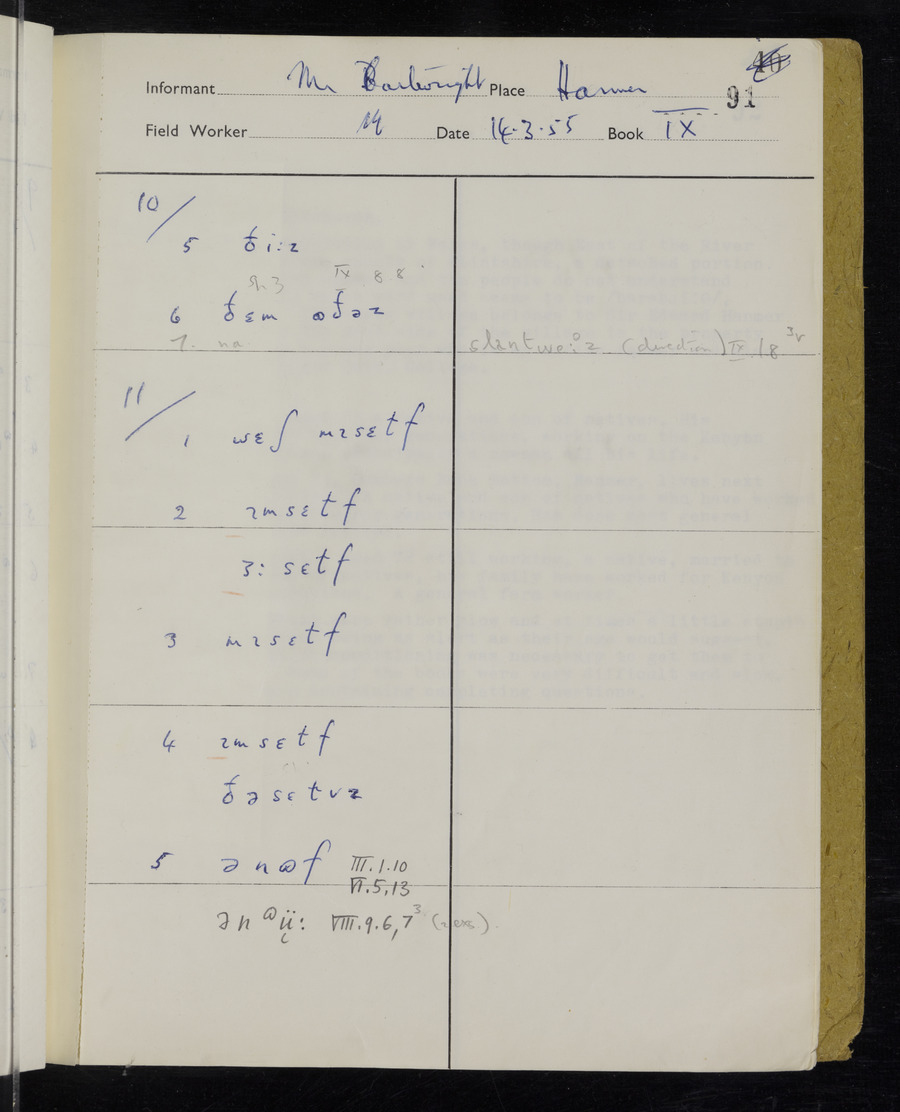 Informant Mr Cartwright Place Hanmer 91
Field Worker Date 14.3.55 Book IX
10/
5 ði:z
IX 8.8
6 ðɛm ɷðəz
7. na
slantwəːᶞz (direction) IX. 18 3v
11/
1 wɛʃ mɪsɛtf
2 ɪmsɛtf
ɜ: sɛtf
3 mɪsɛtf
4 ɪmsɛtf
ðəsɛtvz
5 ənɷf III.1.10
VI.5,13
VIII.9.6,7³